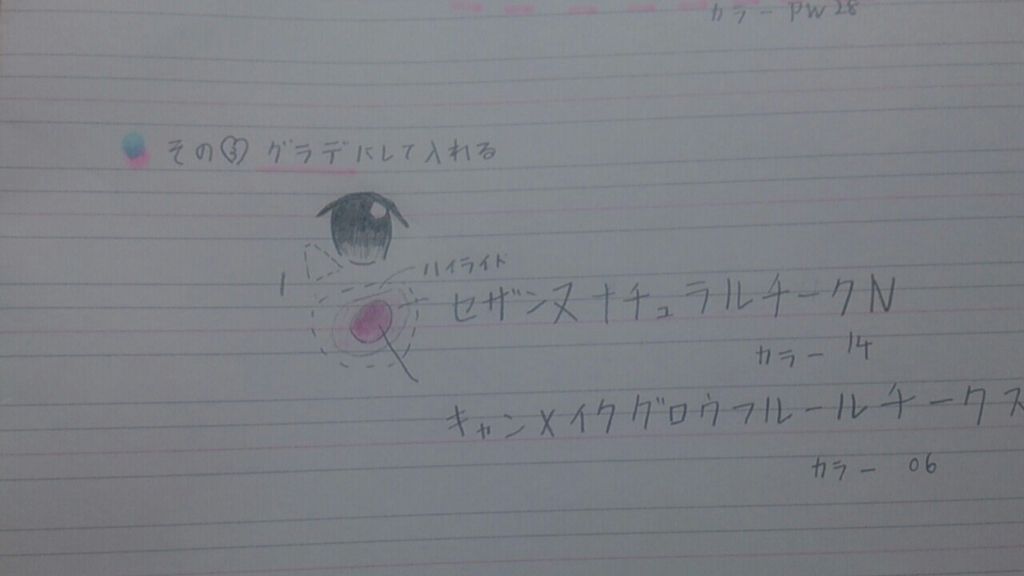 カラー PW28
その③ グラデにして入れる
ハイライト
セザンヌナチュラルチークN
カラー 14
キャンメイクグロウフルールチークス
カラー 06